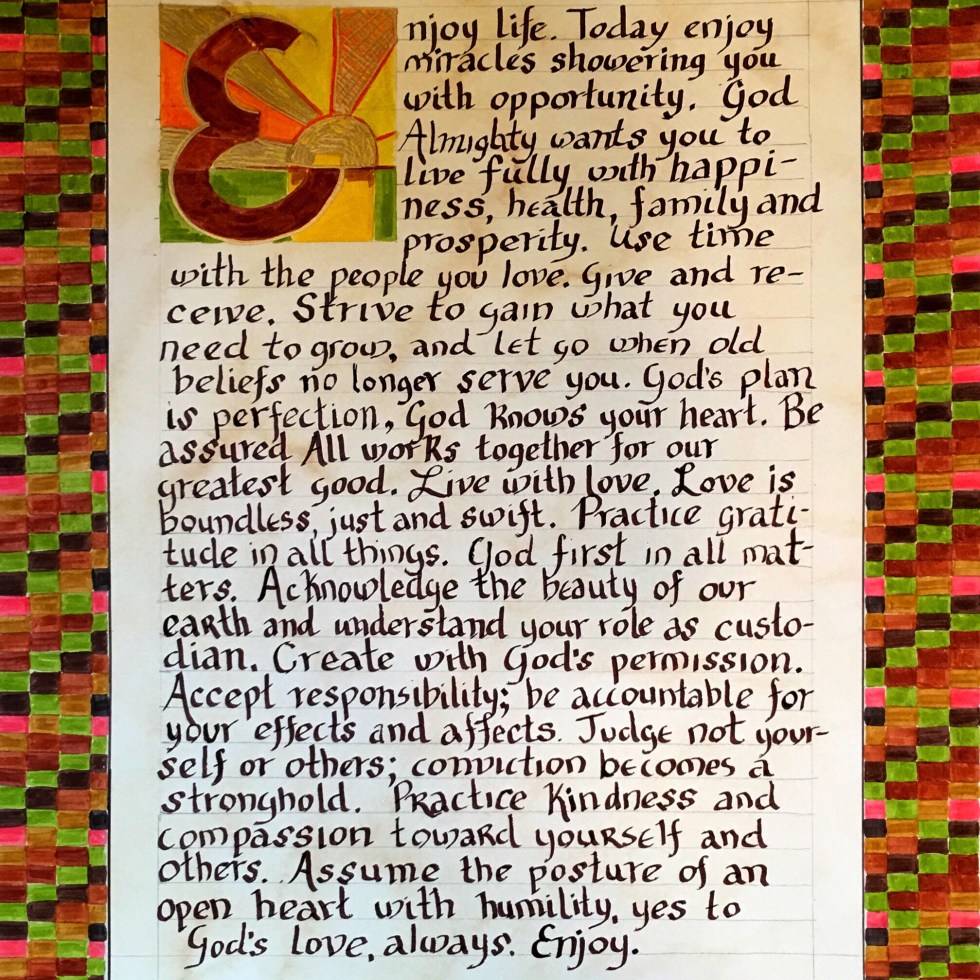 Enjoy life. Today enjoy
miracles showering you
with opportunity. God
Almighty wants you to
live fully with happi-
ness, health, family and
prosperity. Use time
with the people you love. Give and re-
ceive. Strive to gain what you
need to grow, and let go when old
beliefs no longer serve you. God's plan
is perfection, God knows your heart. Be
assured All works together for our
greatest good. Live with love. Love is
boundless, just and swift. Practice grati-
tude in all things. God first in all mat-
ters. Acknowledge the beauty of our
earth and understand your role as custo-
dian. Create with God's permission.
Accept responsibility; be accountable for
your effects and affects. Judge not your-
self or others; conviction becomes a
stronghold. Practice Kindness and
compassion toward yourself and
others. Assume the posture of an
open heart with humility, yes to
God's love, always. Enjoy.